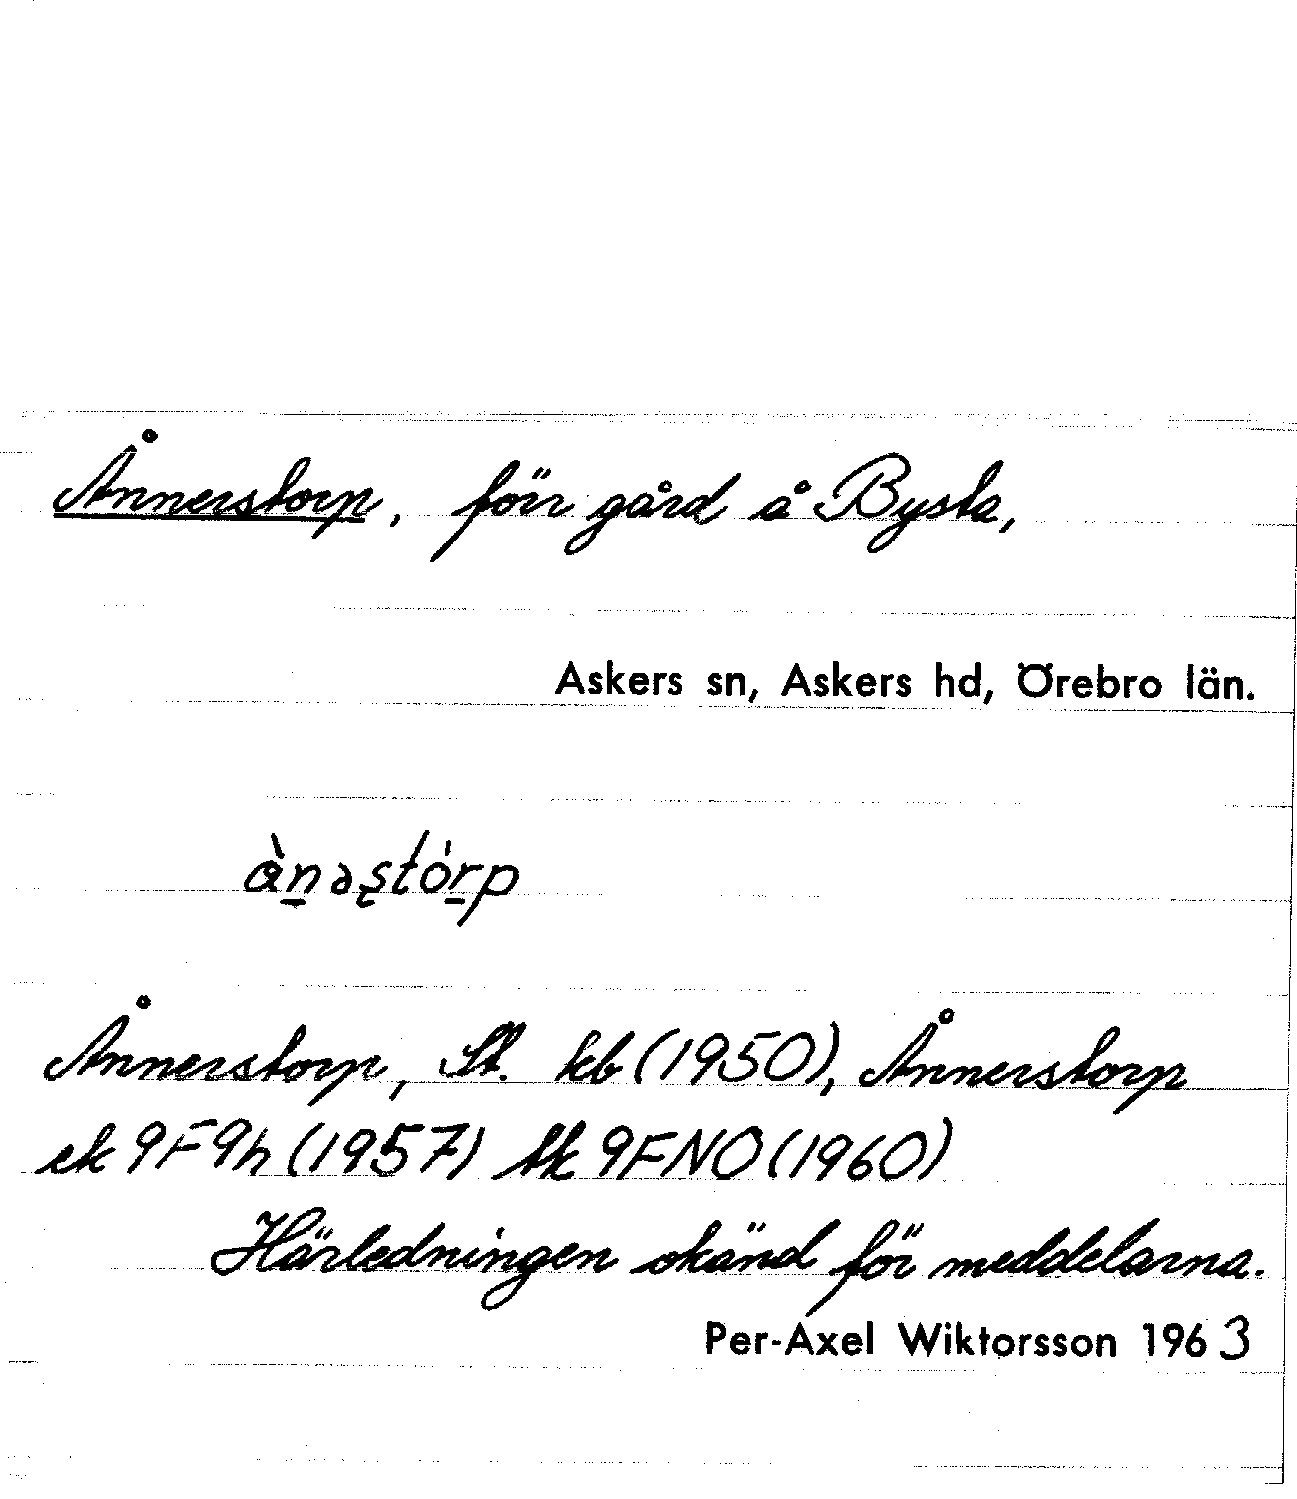 Ånnerstorp, förr gård å Bysta,
Askers sn, Askers hd, Örebro län.
ànəstórp
Ånnerstorp, St. kb (1950), Ånnerstorp
ek 9F9h (1957) tk 9FNO (1960)
Härledningen okänd för meddelarna.
Per-Axel Wiktorsson 1963